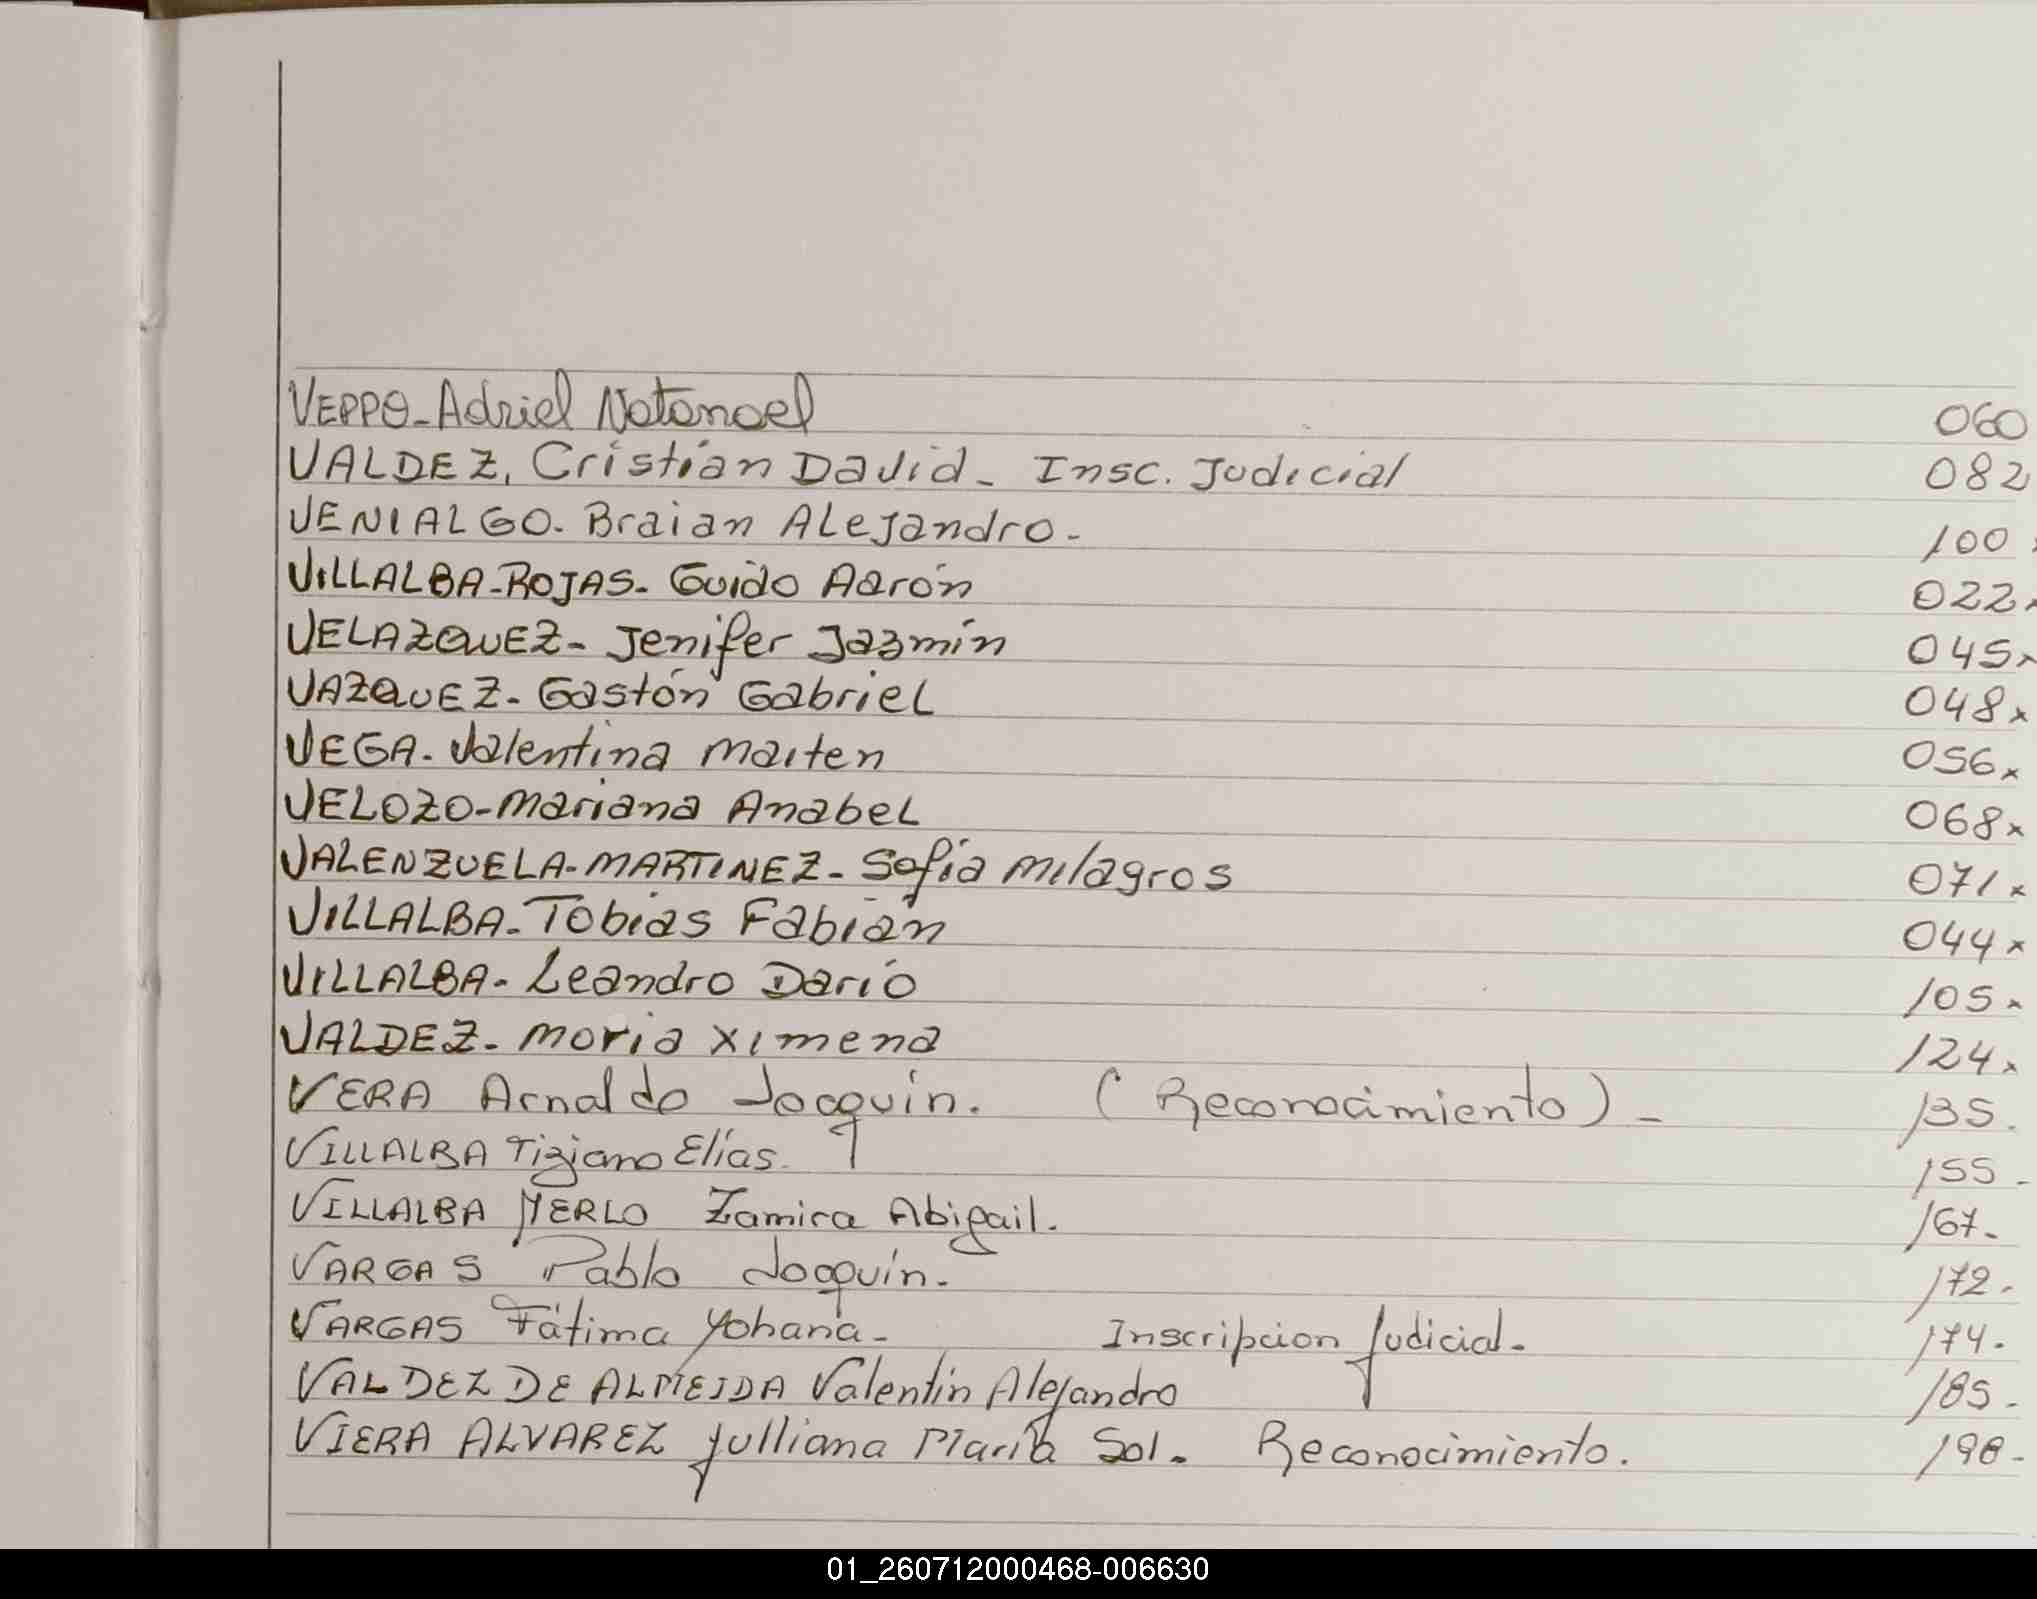 VEPPO-Adriel Natanael 060
VALDEZ, Cristian David- Insc. Judicial 082
VENIALGO- Braian Alejandro- 100
VILLALBA-ROJAS- Guido Aarón 022x
VELAZQUEZ- Jenifer Jazmín 045x
VAZQUEZ- Gastón Gabriel 048x
VEGA- Valentina Maiten 056x
VELOZO-Mariana Anabel 068x
VALENZUELA-MARTINEZ- Sofía Milagros 071x
VILLALBA- Tobías Fabián 044x
VILLALBA- Leandro Darío 105x
VALDEZ- Moria Ximena 124x
VERA Arnaldo Joaquín. (Reconocimiento)- 135.
VILLALBA Tiziano Elías. 155-
VILLALBA MERLO Zamira Abigail. 167-
VARGAS Pablo Joaquín- 172-
VARGAS Fátima Yohana- Inscripcion Judicial- 174-
VALDEZ DE ALMEIDA Valentín Alejandro 185-
VIERA ALVAREZ Julliana María Sol- Reconocimiento. 198-
01_260712000468-006630